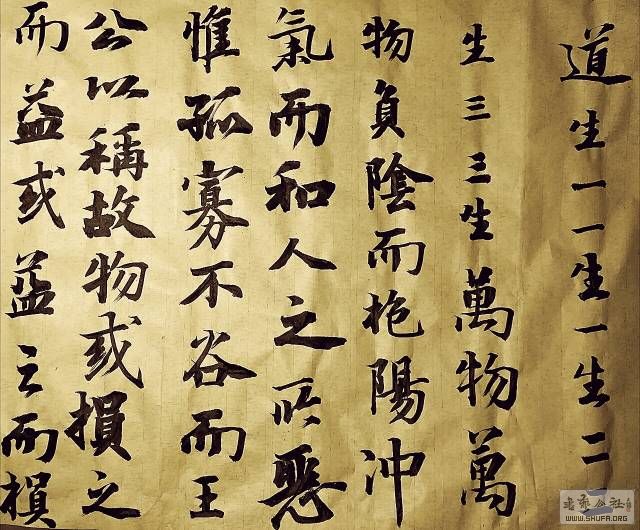 道生一一生一生二
生三三生萬物萬
物負陰而抱陽冲
氣而和人之所惡
惟孤寡不谷而王
公以稱故物或損之
而益或益之而損
WWW.SHUFA.ORG